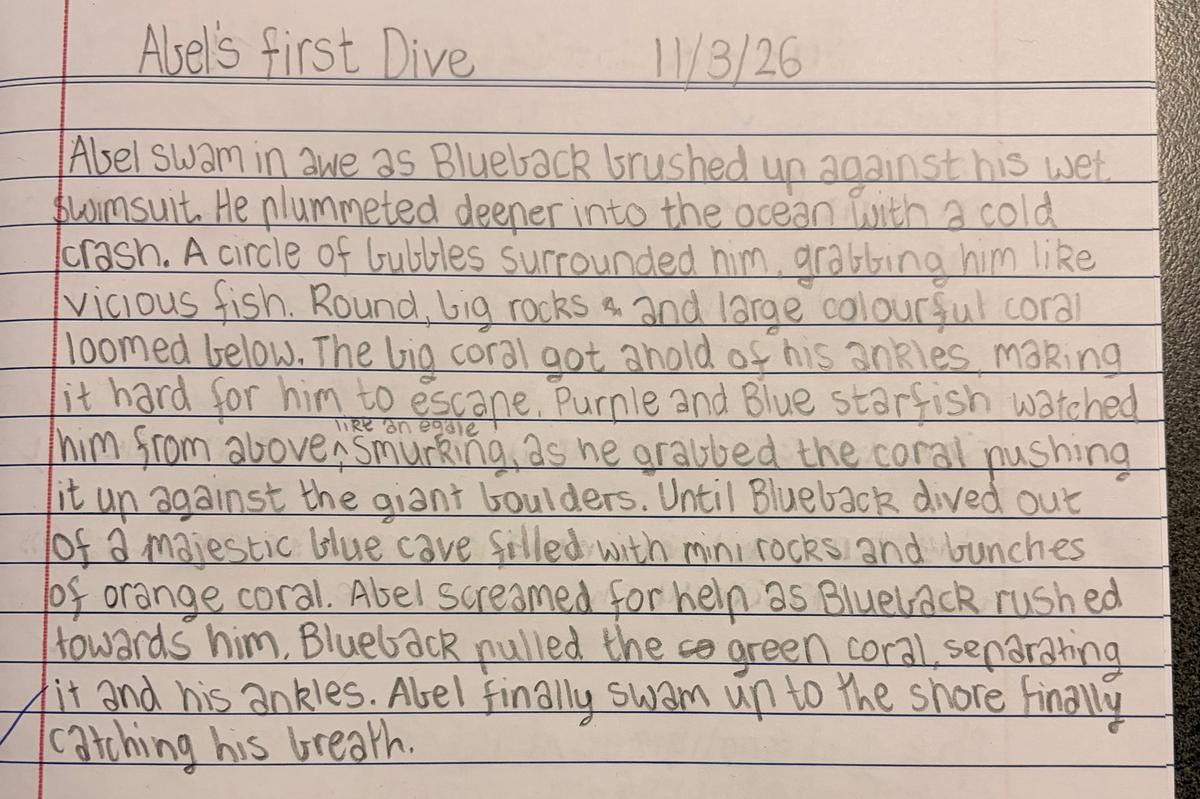 Abel's first Dive 11/3/26
Abel swam in awe as Blueback brushed up against his wet
swimsuit. He plummeted deeper into the ocean with a cold
crash. A circle of bubbles surrounded him, grabbing him like
vicious fish. Round, big rocks and large colourful coral
loomed below. The big coral got ahold of his ankles, making
it hard for him to escape. Purple and Blue starfish watched
like an egale
him from above, ^ smurking, as he grabbed the coral pushing
it up against the giant boulders. Until Blueback dived out
of a majestic blue cave filled with mini rocks and bunches
of orange coral. Abel screamed for help as Blueback rushed
towards him. Blueback pulled the green coral, separating
it and his ankles. Abel finally swam up to the shore finally
catching his breath.